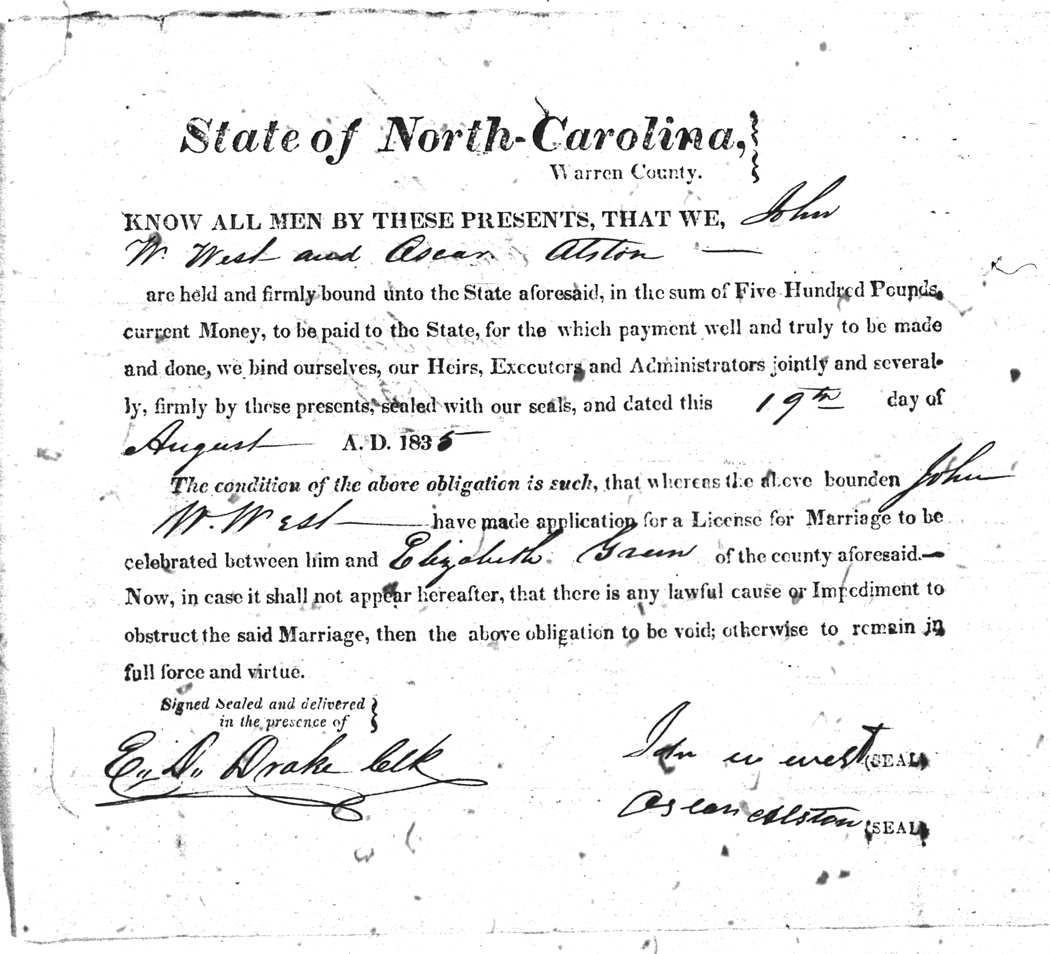 State of North-Carolina,
Warren County.
KNOW ALL MEN BY THESE PRESENTS, THAT WE, John
W. West and Oscar Alston
are held and firmly bound unto the State aforesaid, in the sum of Five Hundred Pounds,
current Money, to be paid to the State, for the which payment well and truly to be made
and done, we bind ourselves, our Heirs, Executors and Administrators jointly and several-
ly, firmly by these presents, sealed with our seals, and dated this 19th day of
August A. D. 1835
The condition of the above obligation is such, that whereas the above bounden John
W. West have made application for a License for Marriage to be
celebrated between him and Elizabeth Green of the county aforesaid.—
Now, in case it shall not appear hereafter, that there is any lawful cause or Impediment to
obstruct the said Marriage, then the above obligation to be void; otherwise to remain in
full force and virtue.
Signed Sealed and delivered
in the presence of
E. D. Drake Clk
Jon w west (SEAL)
Oscar Alston (SEAL)